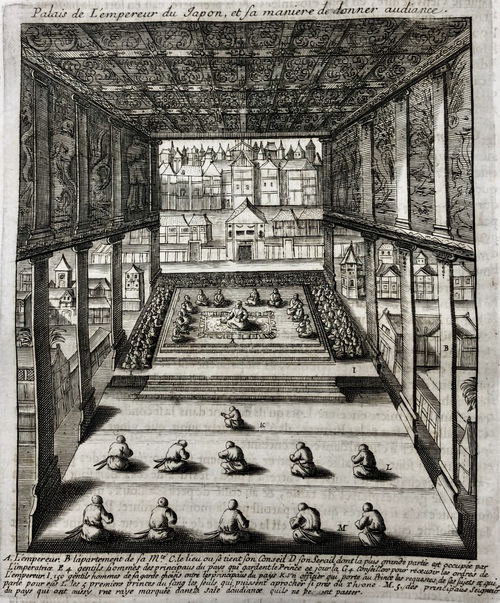 Palais de L'empereur du Japon, et sa maniere de donner audiance.
A
B
I
K
L
M
A. L'empereur. B l'apartement de sa M.té C. le lieu ou se tient son Conseil D son Serail dont la plus grande partie est occupée par
L'imperatrice. F. 4. gentils hommes des principaus du pays qui gardent le Prince
L'empereur. I. 150 gentils hommes de sa garde choisis entre les principaus du pays K. un officier qui porte au Prince les requestes de ses sujets et qui
parle pour eus L. les 5 premiers princes du sang les seuls qui puissent aprocher si pres du Throne M. 5. des principaus Seigneurs
du pays qui ont aussy une raye marquée dans la sale d'audiance qu'ils ne peuvent passer.